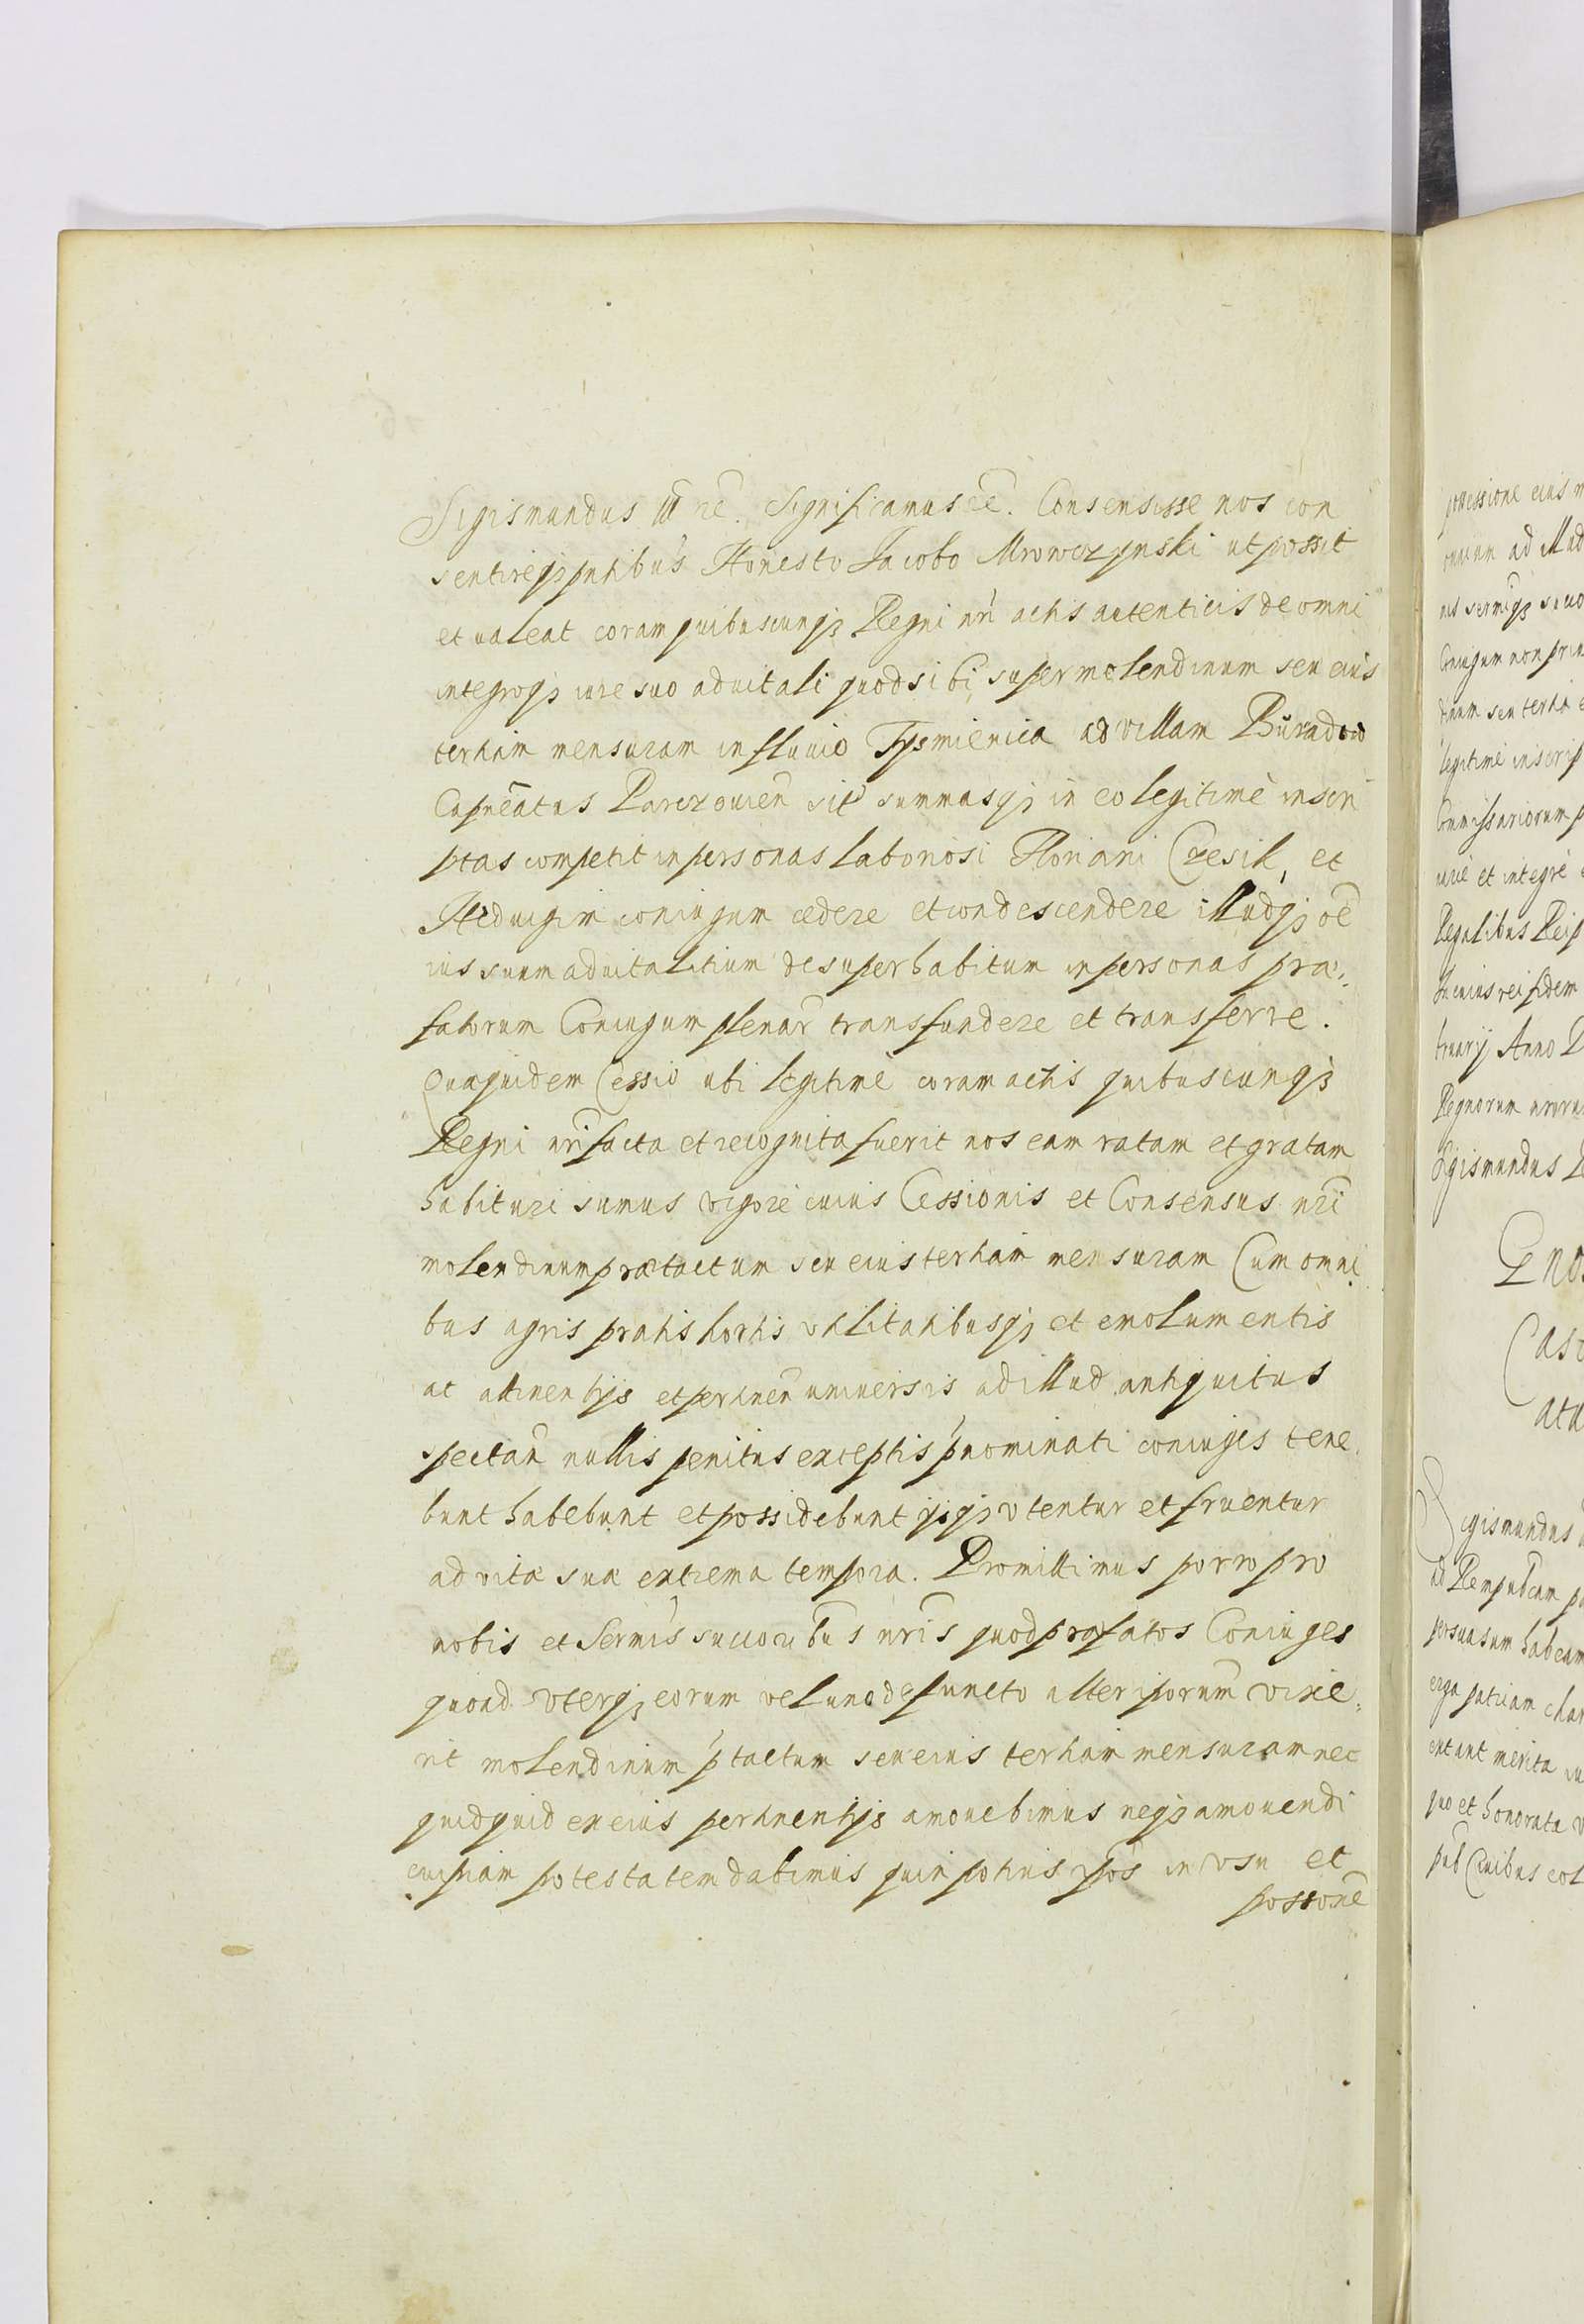 Sigismundus III rē. Significamus eē. Consensisse nos con
sentireqȝ pntibus Honesto Jacobo Mrowczynski ut possit
et ualeat coram quibuscunqȝ Regni nri actis autenticis de omni
integroqȝ iure suo aduitali quod sibi super molendinum seu eius
tertiam mensuram in fluuio Tysmienica ad villam
Capneatus Parczouien sit̃ summasqȝ in eo legitimè inscri
ptas competit in personas laboriosi Floriani Czesik, et
Heduigim coniugum cedere et condescendere illudqȝ oē
ius suum aduitalitium desuper habitum in personas præ,,
fatorum Coniugum plenar̃ transfundere et transferre.
Quæquidem Cessio ubi legitimè coram actis quibuscunqȝ
Regni nri facta et recognita fuerit nos eam ratam et gratam
habituri sumus vigore cuius Cessionis et Consensus nri
molendinum prætactum seu eius tertiam mensuram Cum omni
bus agris pratis hortis utilitatibusqȝ et emolumentis
ac attinentijs et pertinen̄ uniuersis ad illud antiquitus
spectan̄ nullis penitus exceptis pnominati coniuges tene
bunt habebunt et possidebunt ijsqȝ vtentur et fruentur
ad vitæ suæ extrema tempora. Promittimus porro pro
nobis et Sermis succoribus nris quod præfatos Coniuges
quoad vterqȝ eorum vel uno defuncto alter iporum vixe,,
rit molendinum ptactum seu eius tertiam mensuram nec
quidquid ex eius pertinentijs amouebimus neqȝ amouendi
cuipiam potestatem dabimus quin potius ipos in vsu et
possone
possessione eius
ad illud
Coniugum non
dinum seu tertia
legitime inscrip
Commissariorum p
et integrè
Regalibus Reip
In cuius rei fidem
bruarij Anno D
Regnorum nroru
Sigismundus
Cas
Sigismundus
ad Rempublcam
persuasum habeam
erga patriam char
merita
quo et honorata